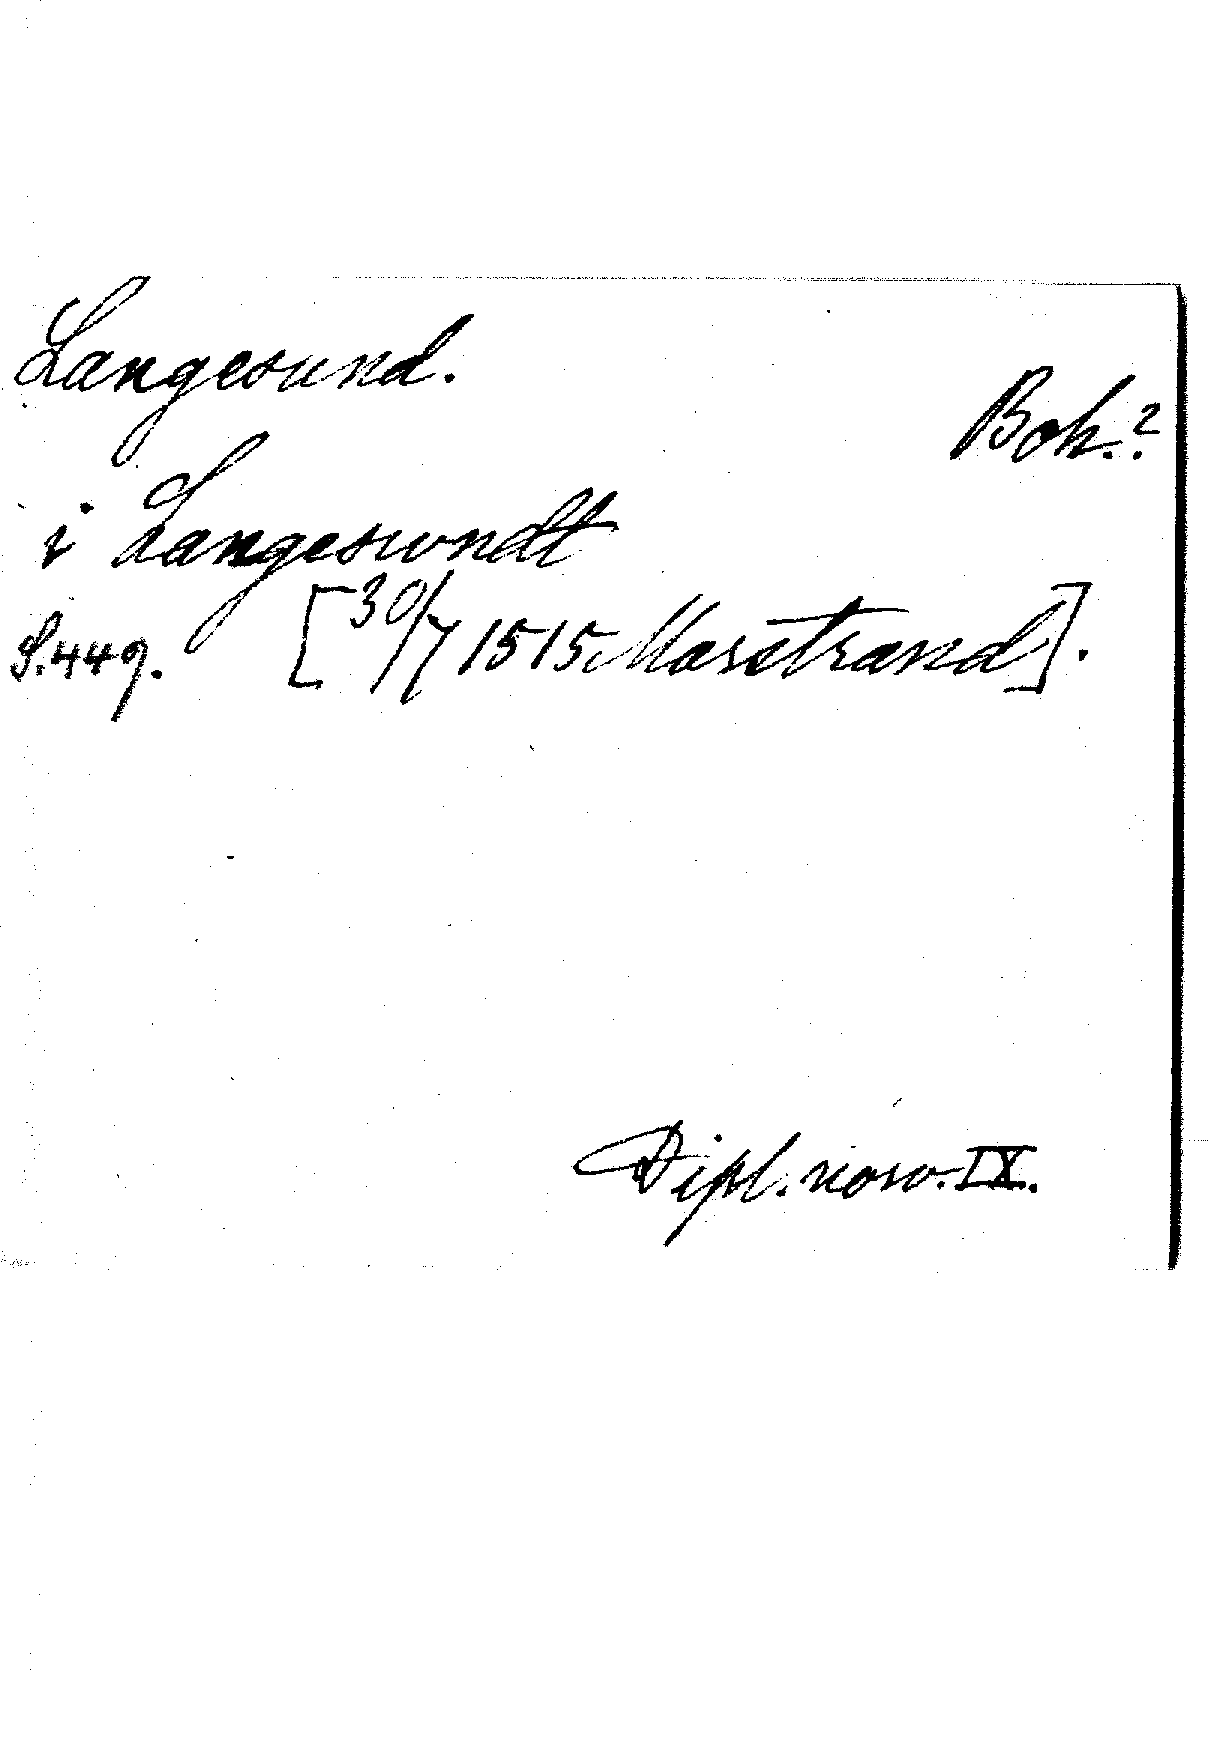 Langesund.
Boh.?
i Langeswndt
S. 449. [30/7 1515 Marstrand].
Dipl. norv. IX.